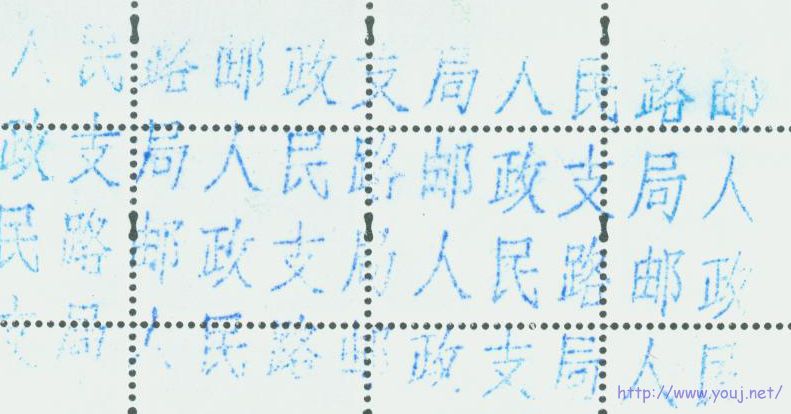 人民路邮政支局人民路邮
政支局人民路邮政支局人
民路邮政支局人民路邮政
支局人民路邮政支局人民
http://www.youj.net/